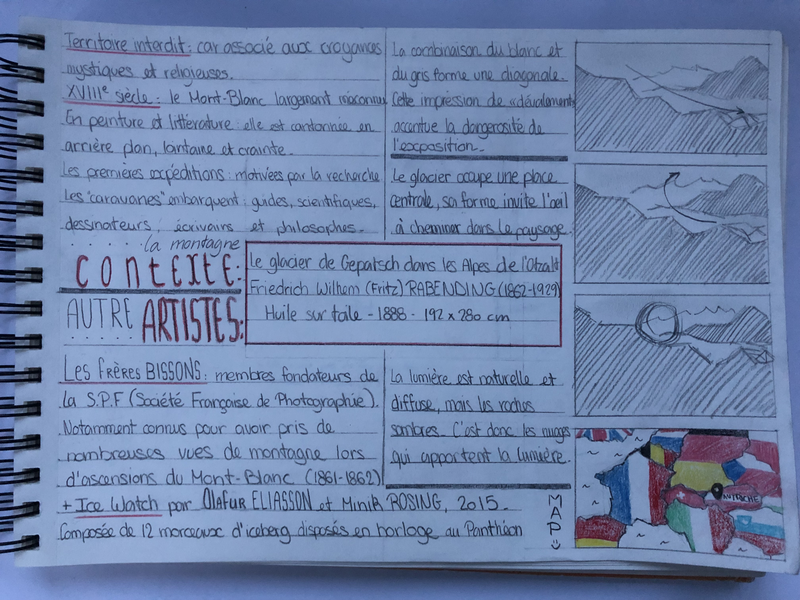 Territoire interdit : car associé aux croyances
mystiques et religieuses.
XVIIIe siècle : le Mont-Blanc largement méconnu.
En peinture et littérature : elle est cantonnée en
arrière plan, lointaine et crainte.
Les premières expéditions : motivées par la recherche
Les "caravanes" embarquent : guides, scientifiques,
dessinateurs, écrivains et philosophes.
la montagne
CONTEXTE:
AUTRE ARTISTES:
La combinaison du blanc et
du gris forme une diagonale.
Cette impression de «dévalement»
accentue la dangerosité de
l'exposition.
Le glacier occupe une place
centrale, sa forme invite l'œil
à cheminer dans le paysage.
Le glacier de Gepatsch dans les Alpes de l'Otzalt
Friedrich Wilhem (Fritz) RABENDING (1862-1929)
Huile sur toile - 1888 - 192 x 280 cm
Les frères BISSONS : membres fondateurs de
la S.P.F (Société Française de Photographie).
Notamment connus pour avoir pris de
nombreuses vues de montagne lors
d'ascensions du Mont-Blanc (1861-1862)
+ Ice Watch par Olafur ELIASSON et Minik ROSING, 2015.
Composée de 12 morceaux d'iceberg disposés en horloge au Panthéon
La lumière est naturelle et
diffuse, mais les roches
sombres. C'est donc les nuages
qui apportent la lumière.
MAP
AUTRICHE